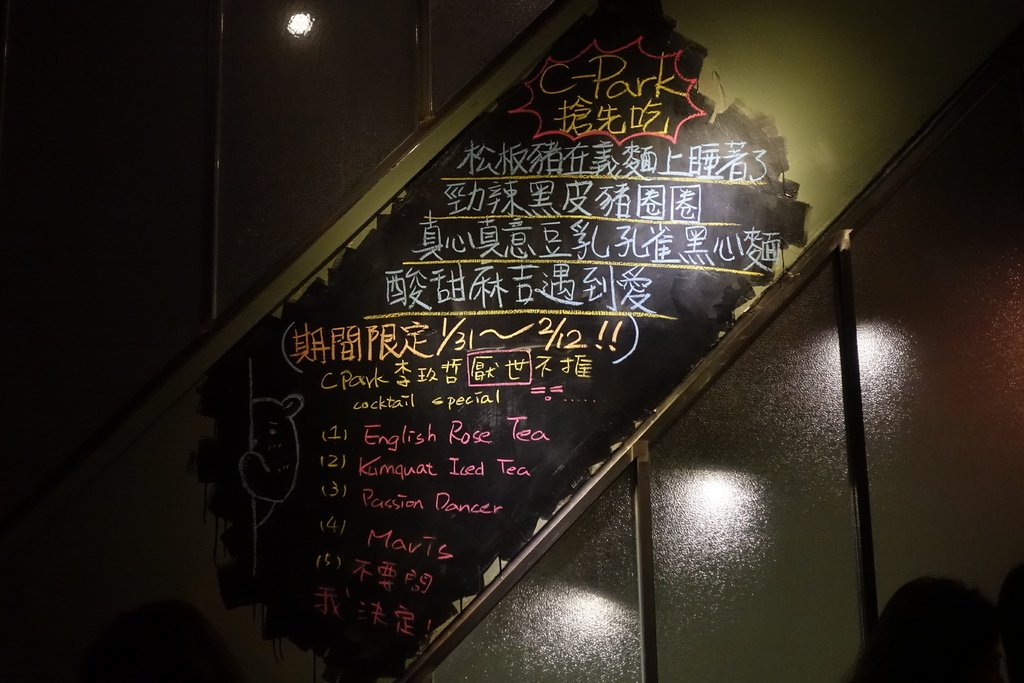 C-Park
搶先吃
松板豬在義麵上睡著了
勁辣黑皮豬圈圈
真心真意豆乳孔雀黑心麵
酸甜麻吉遇到愛
(期間限定1/31~2/12!!)
CPark李玖哲厭世不推
cocktail special =.=.....
(1) English Rose Tea
(2) Kumquat Iced Tea
(3) Passion Dancer
(4) Mavis
(5) 不要問
我決定!